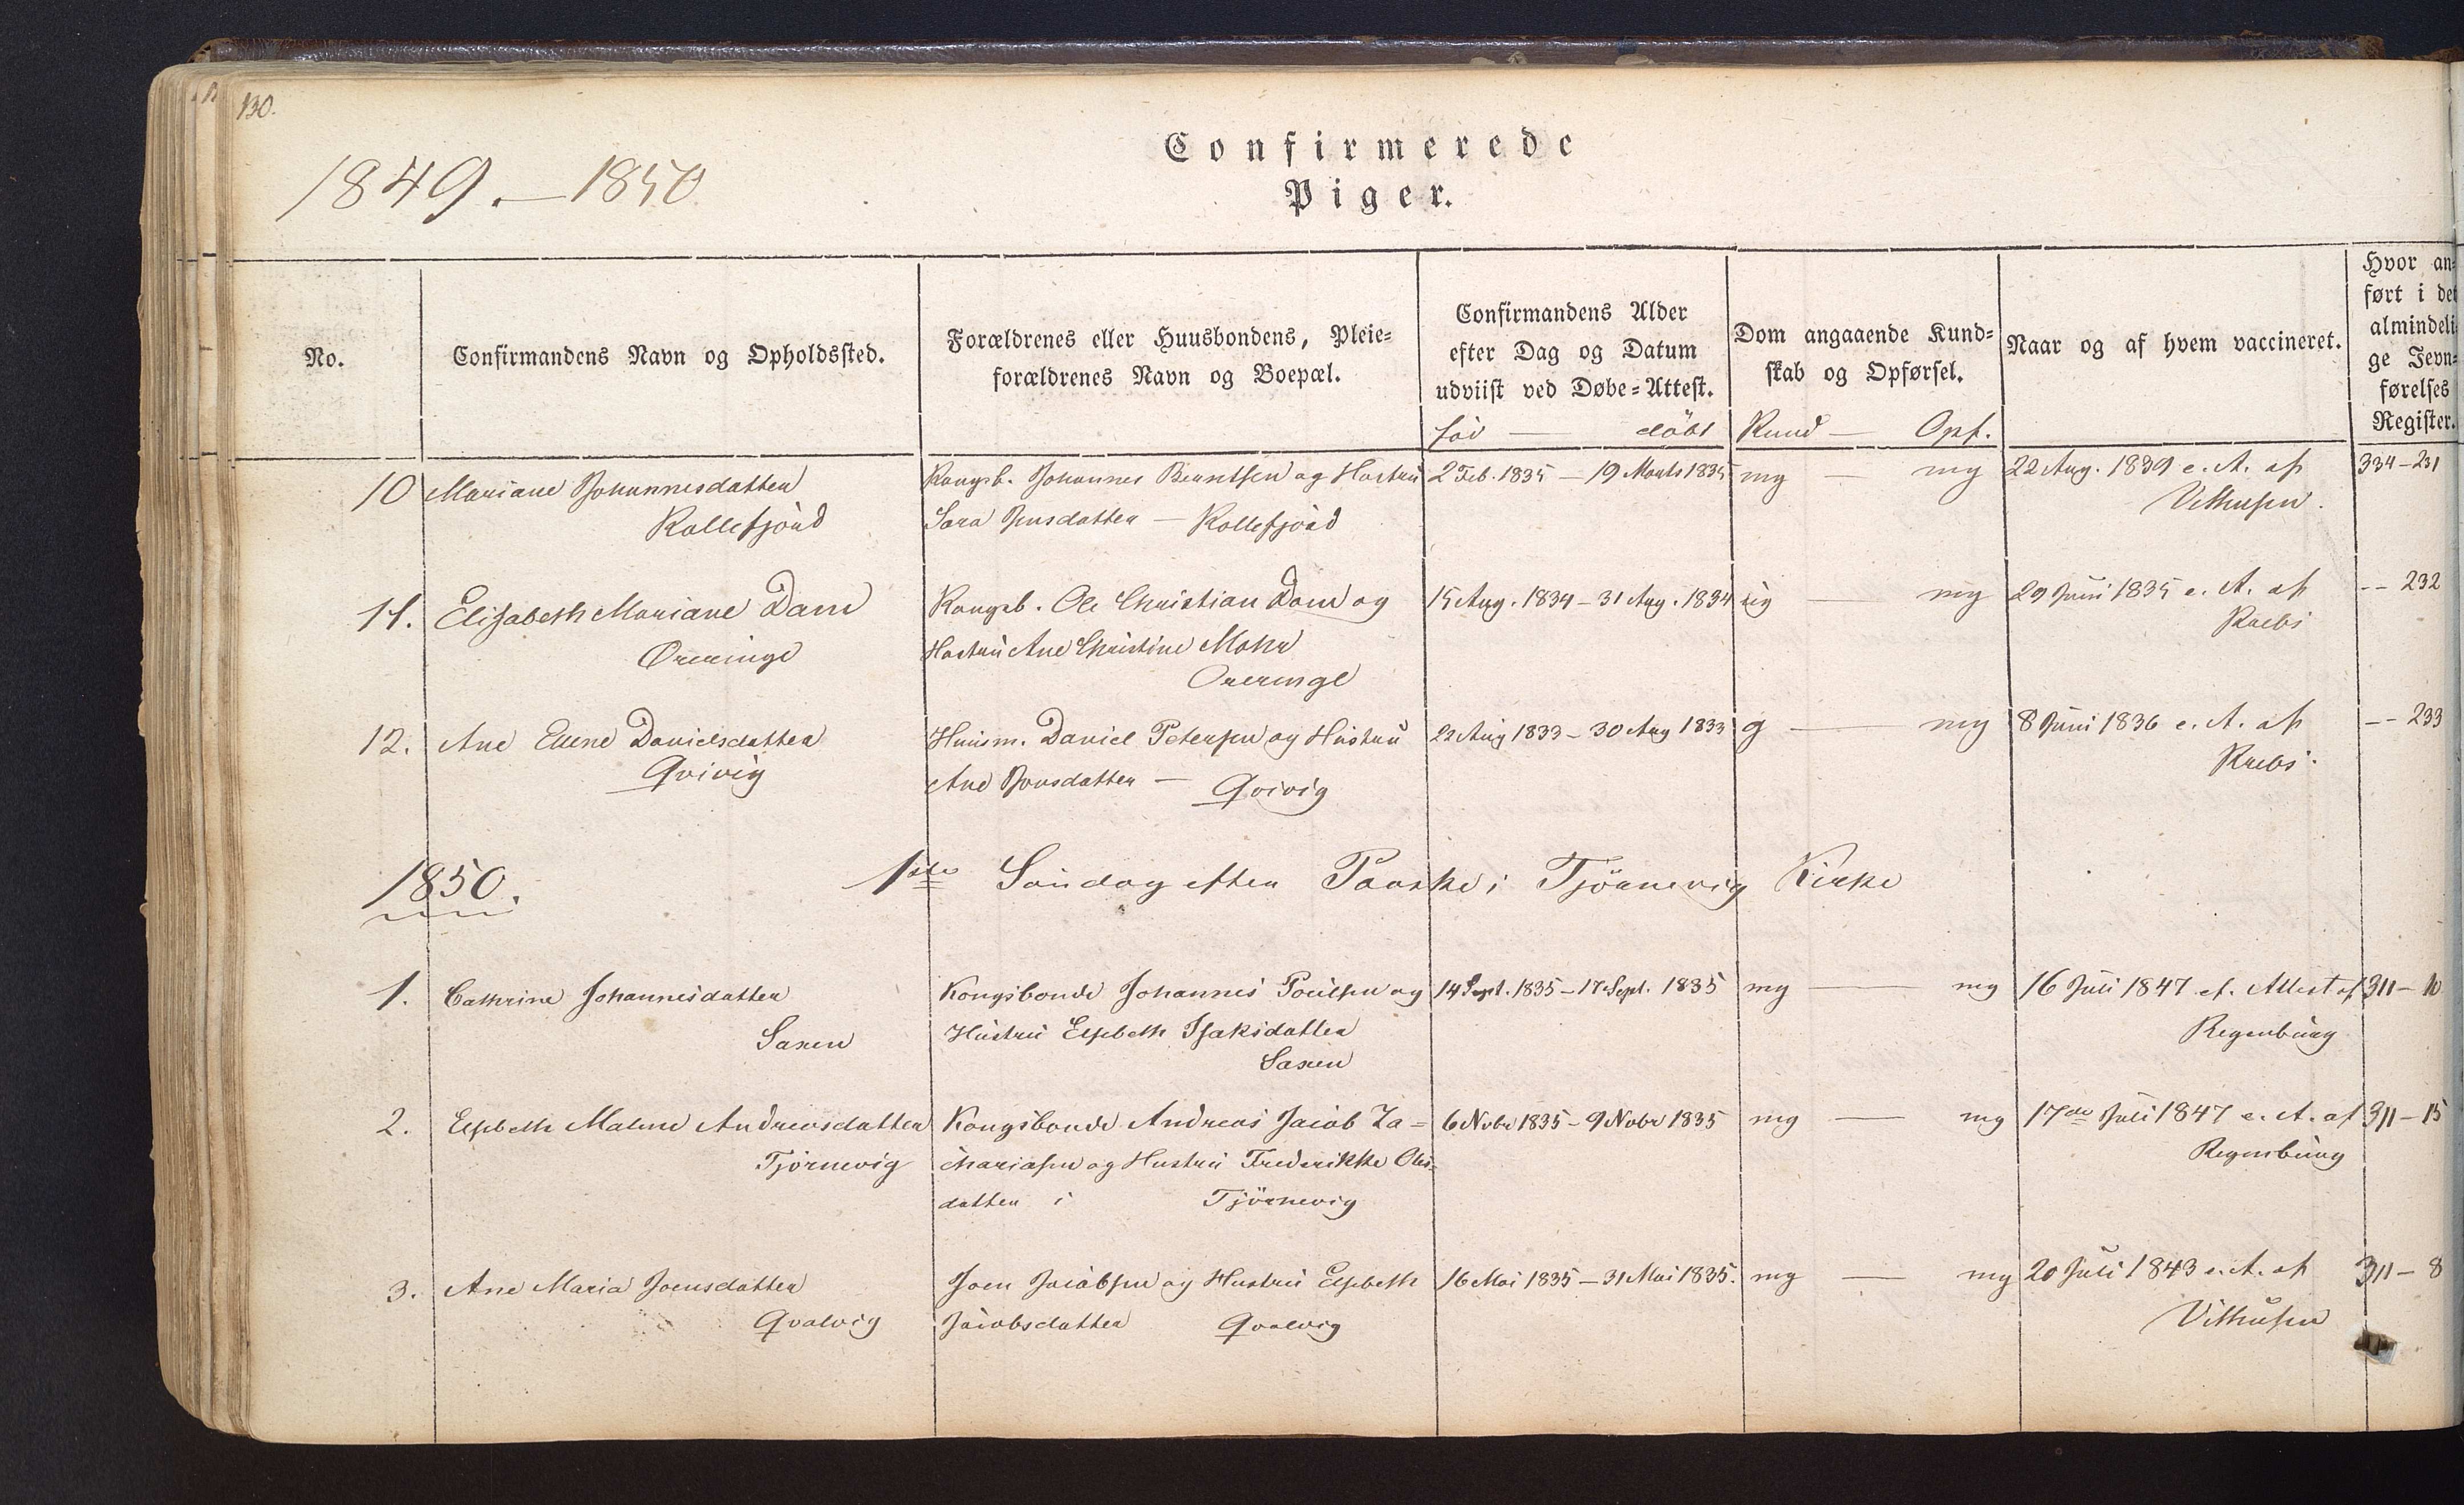 130.
1849. — 1850
Confirmerede
Piger.
No.
Confirmandens Navn og Opholdssted.
Forældrenes eller Huusbondens, Pleie=
forældrenes Navn og Boepæl.
Confirmandens Alder
efter Dag og Datum
udviist ved Døbe=Attest.
Dom angaaende Kund=
skab og Opførsel.
Naar og af hvem vaccineret.
Hvor an=
ført i det
almindeli=
ge Jevn=
førelses
Register.
föd — döbt
Kund — Opf.
10 Mariane Johannesdatter
Kollefjord
Kongsb. Johannes Berntsen og Hustru
Sara Jensdatter — Kollefjord
2 Feb. 1835 — 19 Marts 1835
mg — mg
22 Aug. 1839 e. A. af
334 - 231
11. Elisabeth Mariane Dam
Övreringe
Kongsb. Ole Christian Dam og
Hustru Ane Christine Mohr
15 Aug. 1834 - 31 Aug. 1834
ug — mg
29 Juni 1835 e. A. af
Krebs
-- 232
12. Ane Elene Danielsdatter
Qvivig
Huusm. Daniel Petersen og Hustru
Ane Jonsdatter — Qvivig
22 Aug 1833 - 30 Aug 1833
g — mg
8 Juni 1836 e. A. af
Krebs.
-- 233
1850. 1ste Söndag efter Paaske i Tjörnevig Kirke
1. Cathrine Johannesdatter
Saxen
Kongsbonde Johannes Poulsen og
Hustru Elsbeth Isaksdatter
Saxen
14 Sept. 1835 - 17. Sept. 1835
mg — mg
16 Juli 1847 ef. Attest af
Regenburg
311 - 10
2. Elsbeth Malene Andreasdatter
Tjörnevig
Kongsbonde Andreas Jacob Za=
chariasen og Hustru Frederikke Ols=
datter i Tjörnevig
6 Nobr 1835 - 9 Nobr 1835
mg — mg
17de Juli 1847 e. A. af
Regenburg
311 - 15
3. Ane Maria Joensdatter
Qvalvig
Joen Jacobsen og Hustru Elsbeth
Jacobsdatter Qvalvig
16 Mai 1835 — 31 Mai 1835.
mg — mg
20 Juli 1843 e. A. af
311 - 8